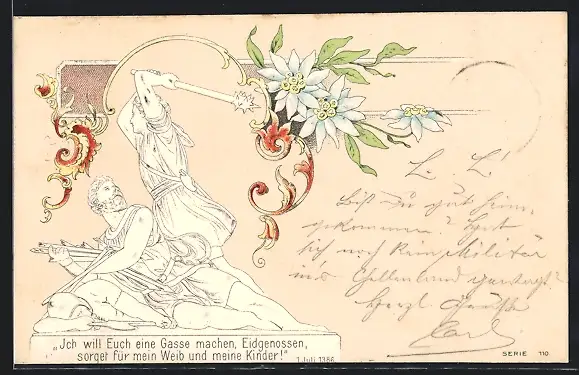 L. L!
Bist Du gut heim-
gekommen? Hat
sich noch kein Militär
ins gewagt?
Herzl. Grüße
Carl
„Jch will Euch eine Gasse machen, Eidgenossen,
sorget für mein Weib und meine Kinder!"
1 Juli 1386.
SERIE 110